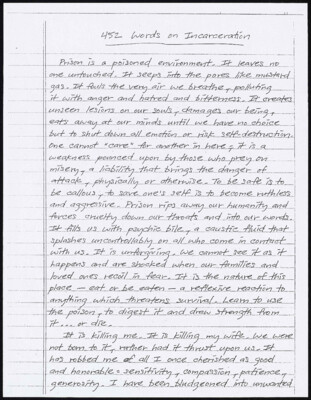 452 Words on Incarceration
Prison is a poisoned environment. It leaves no
one untouched. It seeps into the pores like mustard
gas. It fouls the very air we breathe, polluting
it with anger and hatred and bitterness. It creates
unseen lesions on our souls, damages our being,
eats away at our minds until we have no choice
but to shut down all emotion or risk self-destruction.
One cannot "care" for another in here; it is a
weakness pounced upon by those who prey on
misery, a liability that brings the danger of
attack, physically or otherwise. To be safe is to
be callous, to save one's self is to become ruthless
and aggressive. Prison rips away our humanity and
forces cruelty down our throats and into our words.
It fills us with psychic bile, a caustic fluid that
splashes uncontrollably on all who come in contact
with us. It is unforgiving. We cannot see it as it
happens and are shocked when our families and
loved ones recoil in fear. It is the nature of this
place — eat or be eaten — a reflexive reaction to
anything which threatens survival. Learn to use
the poison, to digest it and draw strength from
it... or die.
It is killing me. It is killing my wife. We were
not born to it, rather had it thrust upon us. It
has robbed me of all I once cherished as good
and honorable: sensitivity, compassion, patience,
generosity. I have been bludgeoned into unwanted